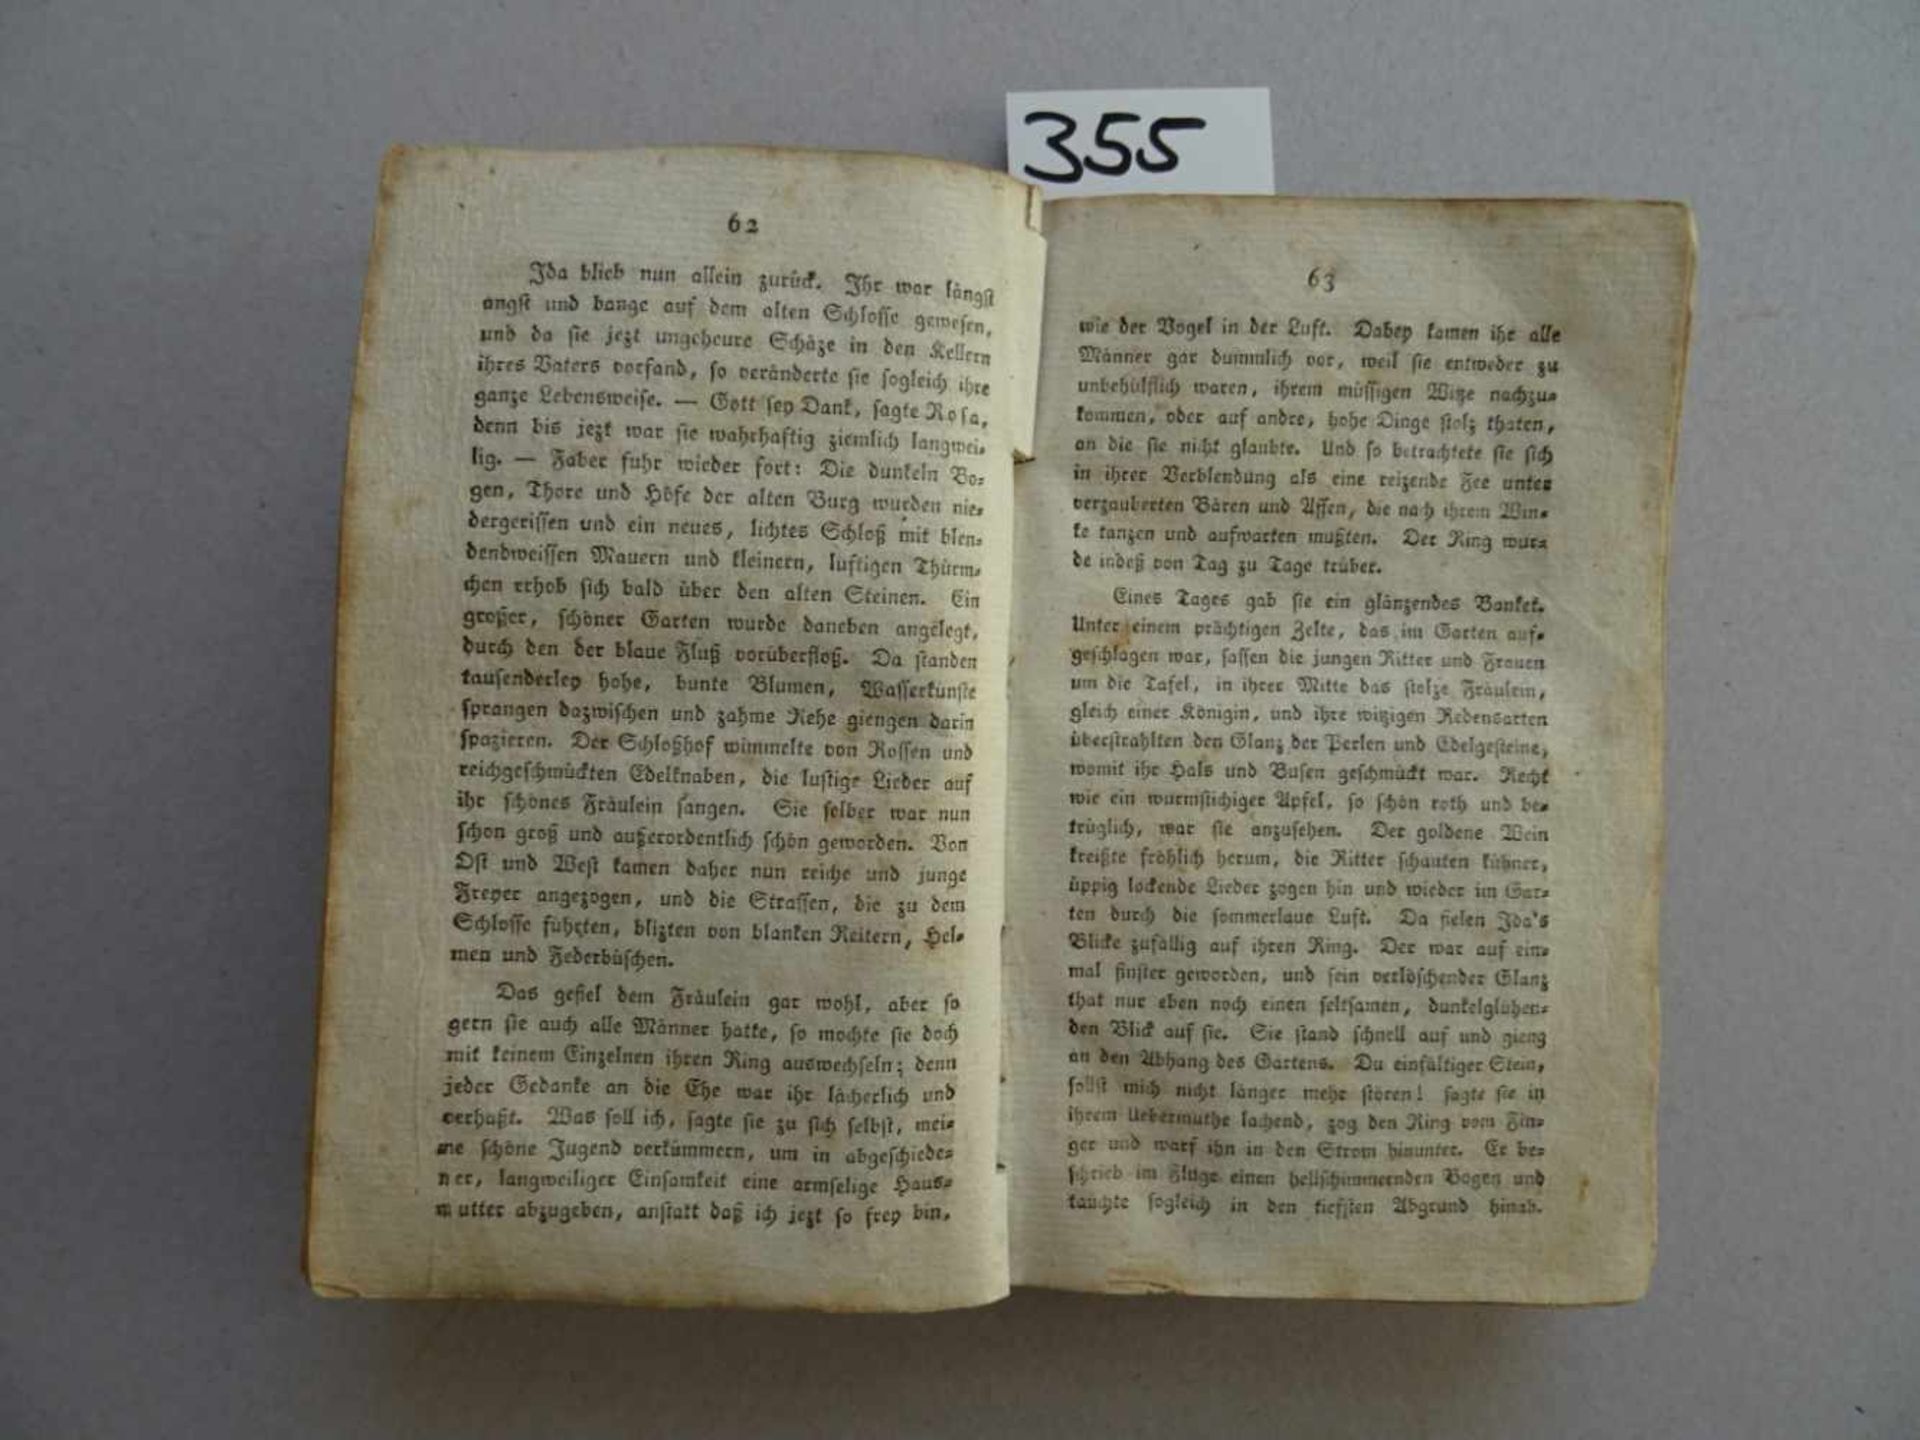 355
62
Ida blieb nun allein zurück. Ihr war längst
angst und bange auf dem alten Schlosse gewesen,
und da sie jezt ungeheure Schäze in den Kellern
ihres Vaters vorfand, so veränderte sie sogleich ihre
ganze Lebensweise. — Gott sey Dank, sagte Rosa,
denn bis jezt war sie wahrhaftig ziemlich langwei-
lig. — Faber fuhr wieder fort: Die dunkeln Bo-
gen, Thore und Höfe der alten Burg wurden nie-
dergerissen und ein neues, lichtes Schloß mit blen-
dendweissen Mauern und kleinern, luftigen Thürm-
chen erhob sich bald über den alten Steinen. Ein
großer, schöner Garten wurde daneben angelegt,
durch den der blaue Fluß vorüberfloß. Da standen
tausenderley hohe, bunte Blumen, Wasserkünste
sprangen dazwischen und zahme Rehe giengen darin
spazieren. Der Schloßhof wimmelte von Rossen und
reichgeschmückten Edelknaben, die lustige Lieder auf
ihr schönes Fräulein sangen. Sie selber war nun
schon groß und außerordentlich schön geworden. Von
Ost und West kamen daher nun reiche und junge
Freyer angezogen, und die Strassen, die zu dem
Schlosse führten, blizten von blanken Reitern, Hel-
men und Federbüschen.
Das gefiel dem Fräulein gar wohl, aber so
gern sie auch alle Männer hatte, so mochte sie doch
mit keinem Einzelnen ihren Ring auswechseln; denn
jeder Gedanke an die Ehe war ihr lächerlich und
verhaßt. Was soll ich, sagte sie zu sich selbst, mei-
ne schöne Jugend verkümmern, um in abgeschiede-
ner, langweiliger Einsamkeit eine armselige Haus-
mutter abzugeben, anstatt daß ich jezt so frey bin,
63
wie der Vogel in der Luft. Dabey kamen ihr alle
Männer gar dummlich vor, weil sie entweder zu
unbehülflich waren, ihrem müssigen Witze nachzu-
kommen, oder auf andre, hohe Dinge stolz thaten,
an die sie nicht glaubte. Und so betrachtete sie sich
in ihrer Verblendung als eine reizende Fee unter
verzauberten Bären und Affen, die nach ihrem Win-
ke tanzen und aufwarten mußten. Der Ring wur-
de indeß von Tag zu Tage trüber.
Eines Tages gab sie ein glänzendes Banket.
Unter einem prächtigen Zelte, das im Garten auf-
geschlagen war, sassen die jungen Ritter und Frauen
um die Tafel, in ihrer Mitte das stolze Fräulein,
gleich einer Königin, und ihre witzigen Redensarten
überstrahlten den Glanz der Perlen und Edelgesteine,
womit ihr Hals und Busen geschmückt war. Recht
wie ein wurmstichiger Apfel, so schön roth und be-
trüglich, war sie anzusehen. Der goldene Wein
kreißte fröhlich herum, die Ritter schauten kühner,
üppig lockende Lieder zogen hin und wieder im Gar-
ten durch die sommerlaue Luft. Da fielen Ida's
Blicke zufällig auf ihren Ring. Der war auf ein-
mal finster geworden, und sein verlöschender Glanz
that nur eben noch einen seltsamen, dunkelglühen-
den Blick auf sie. Sie stand schnell auf und gieng
an den Abhang des Gartens. Du einfältiger Stein,
sollst mich nicht länger mehr stören! sagte sie in
ihrem Uebermuthe lachend, zog den Ring vom Fin-
ger und warf ihn in den Strom hinunter. Er be-
schrieb im Fluge einen hellschimmernden Bogen und
tauchte sogleich in den tiefsten Abgrund hinab.